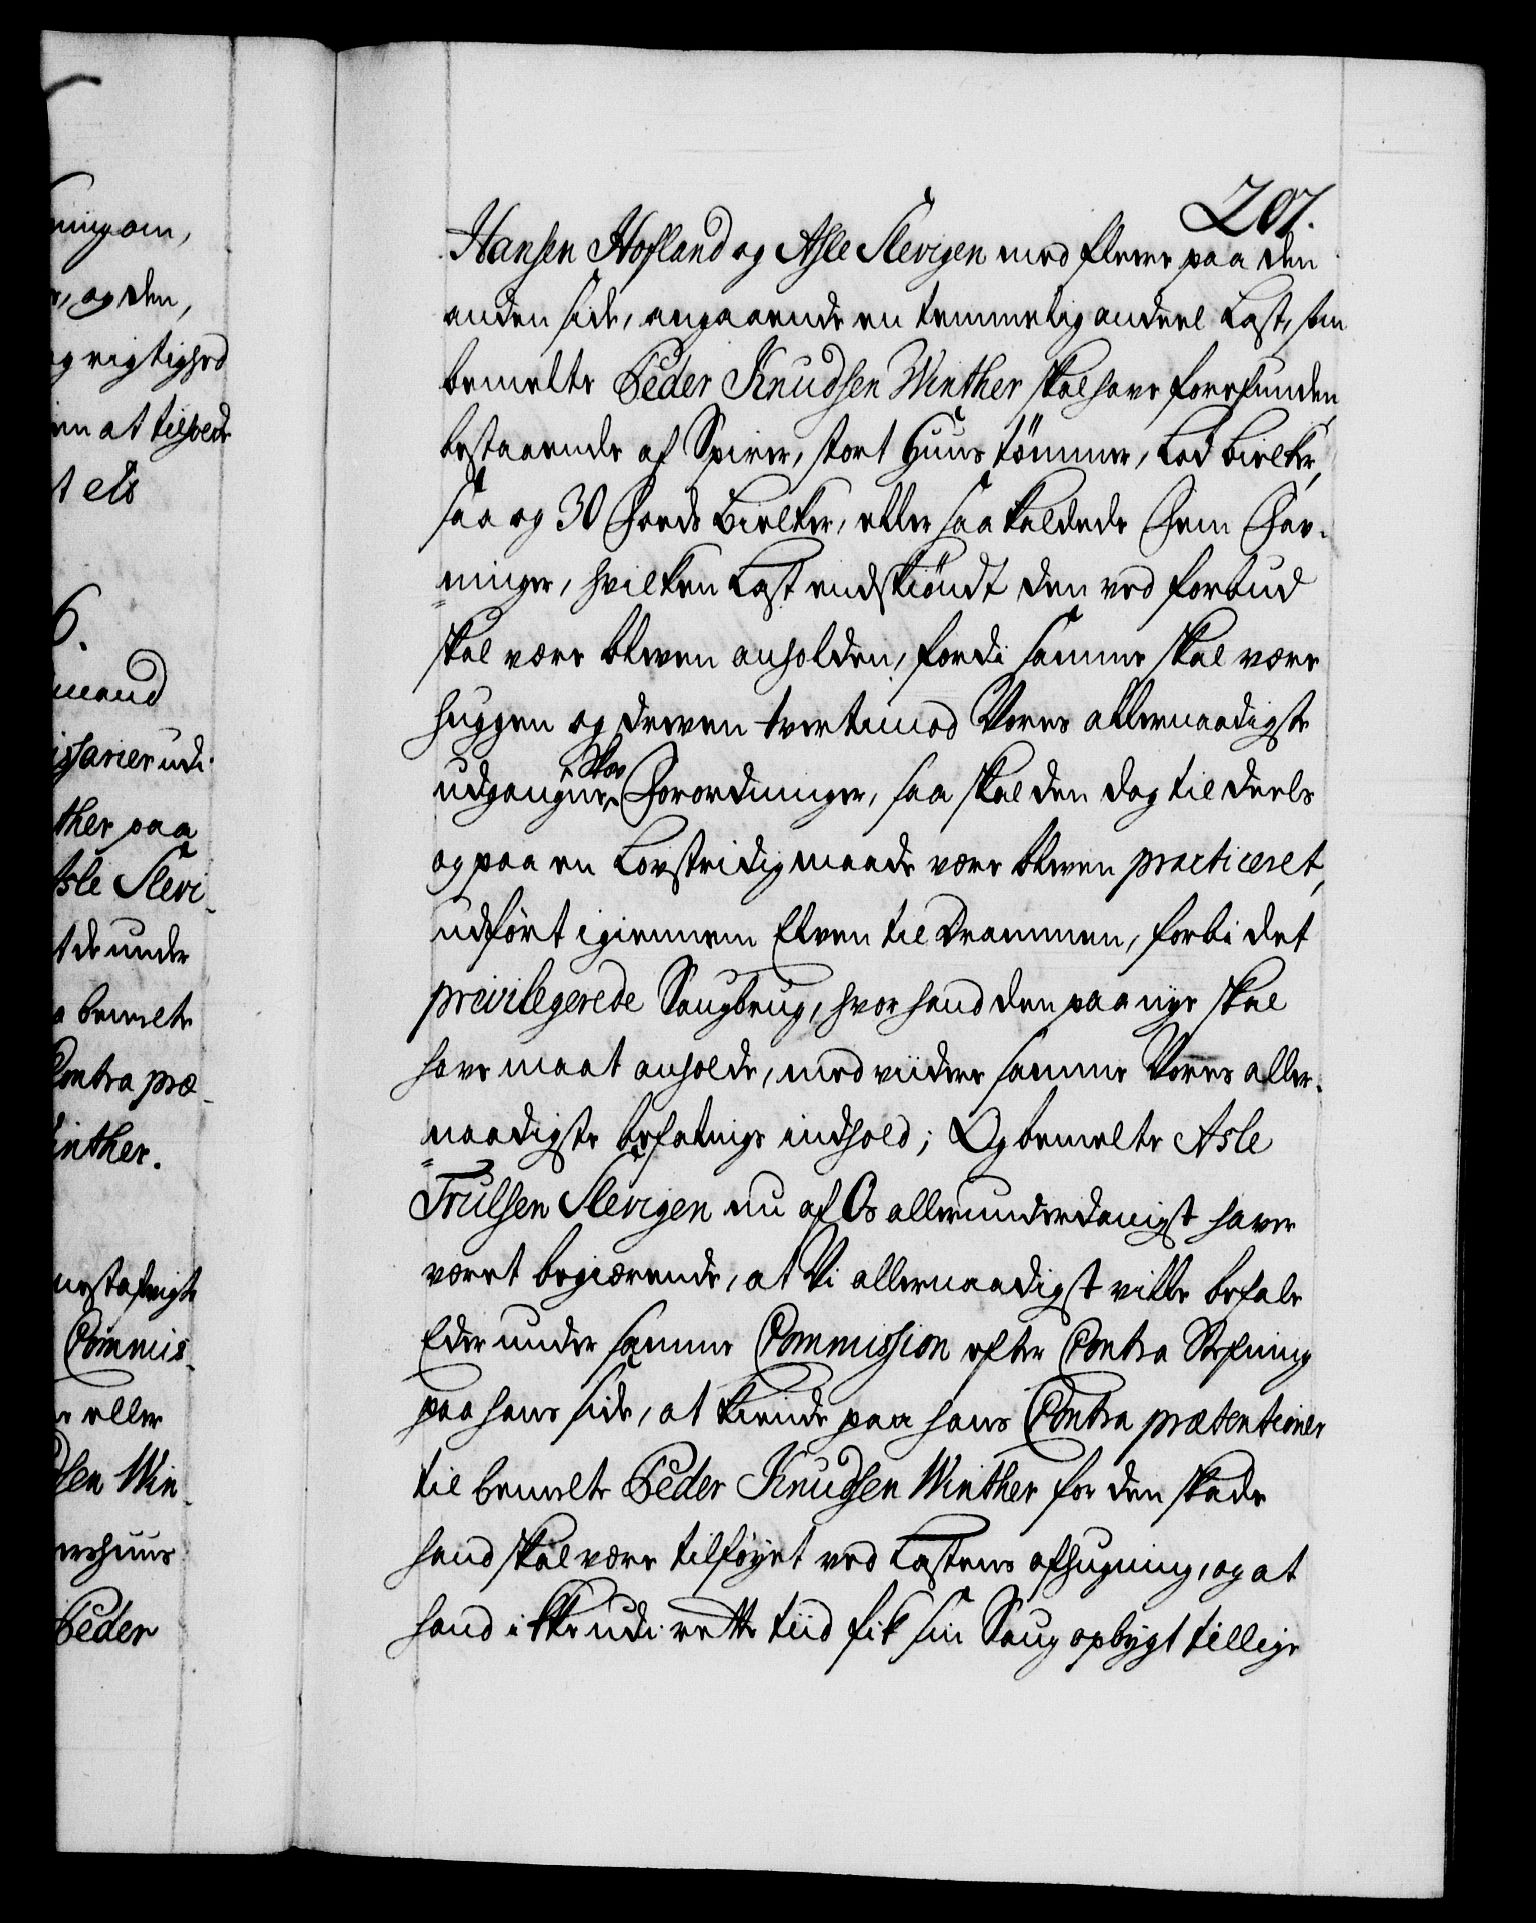 ning om,
, og den,
g rigtighed
en at tilhede
t els
6.
mand
issarier udi
ther paa
sle Slevi-
t de under
bemelte
Contra præ-
inther.
Commis-
eller
dsen Win-
ershuus
Peder
207.
Hansen Hofland og Asle Slevigen med fleere paa den
anden side, angaaende en temmelig andeel Last, som
bemelte Peder Knudsen Winther skal have forefunden,
bestaaende af Spirer, stort Huus tömmer, Lod Bielker,
saa og 30 Foeds Bielker, eller saa kaldede Fem Fav-
ninger, hvilken Last endskiöndt den ved forbud
skal være bleven anholden, fordi samme skal være
huggen og dreven tvertimod Vores allernaadigste
udgangne Skov Forordninger, saa skal den dog til deels
og paa en Lovstridig maade være bleven practiceret,
udfört igiennem Elven til Drammen, forbi det
privilegerede Saugbrug, hvor hand den paa nye skal
have maat anholde, med viidere samme Vores aller-
naadigste befalings indhold; Og bemelte Asle
Trulsen Slevigen nu af Os allerunderdanigst haver
været begiærende, at Vi allernaadigst vilde befale
Eder under samme Commission efter Contra Stefning
paa hans side, at kiende paa hans Contra prætentioner
til bemelte Peder Knudsen Winther for den skade
hand skal være tilföyet ved Lastens afhugning, og at
hand ikke udi rette tiid fik sin Saug opbygt tillige